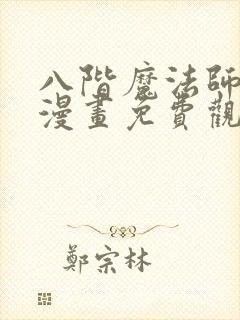 八階魔法師
漫畫免費觀
鄭宗林